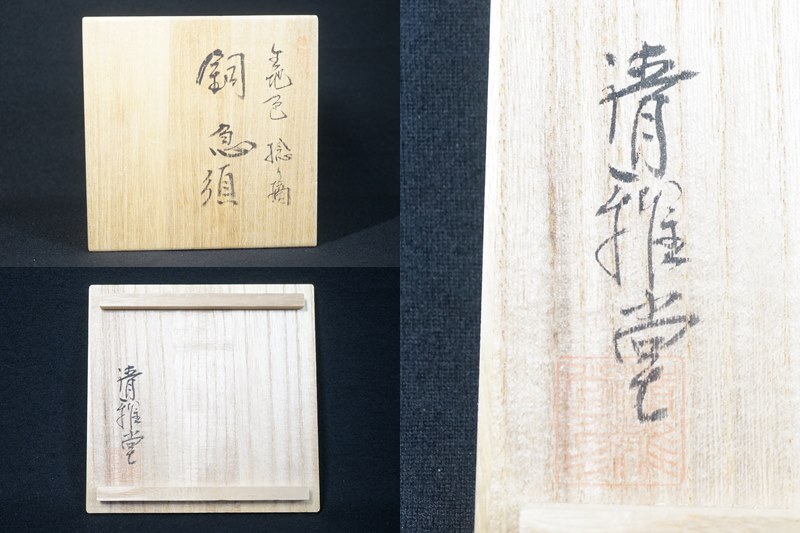 地色 捻
銅 急須
清雅堂
清雅堂